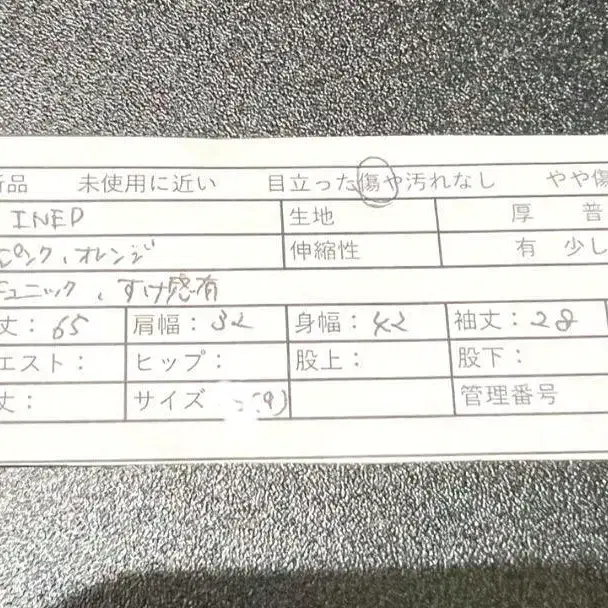 新品 未使用に近い 目立った傷や汚れなし やや傷
INED 生地 厚 普
ピンク、オレンジ 伸縮性 有 少し
チュニック、すけ感有
丈：65 肩幅：32 身幅：42 袖丈：28
エスト： ヒップ： 股上： 股下：
丈： サイズ (9) 管理番号